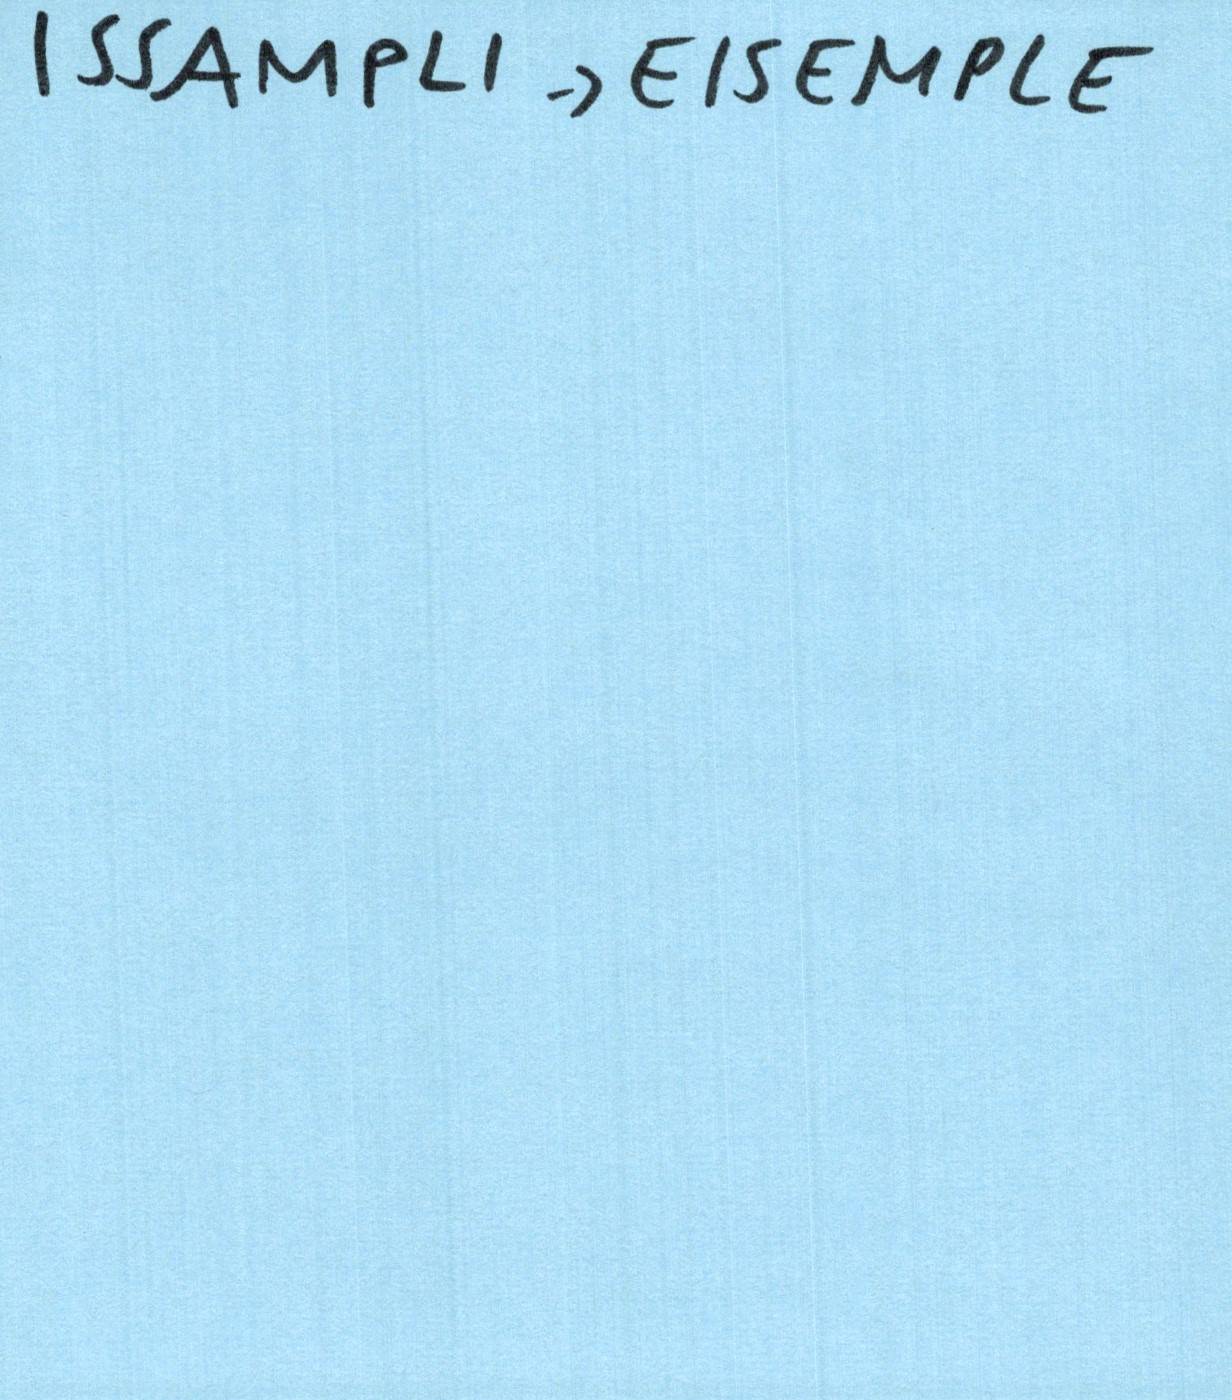 ISSAMPLI -> EISEMPLE